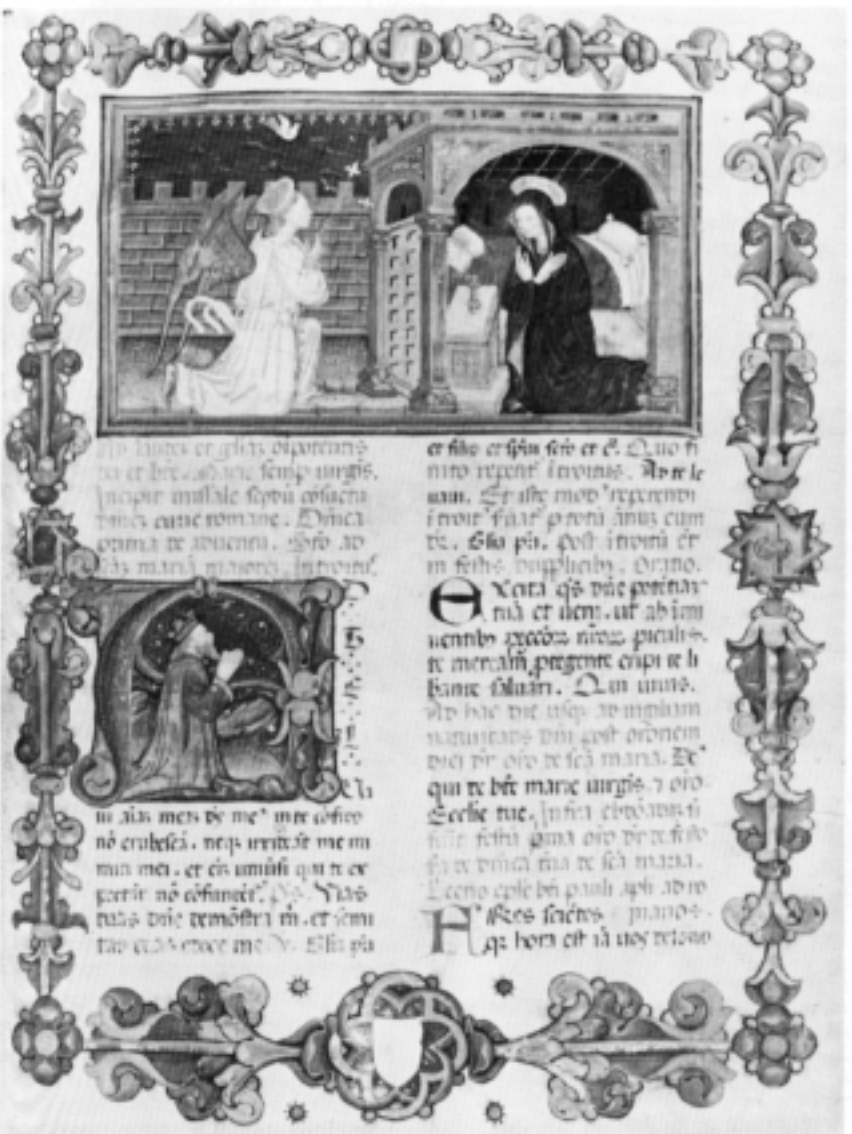 Ad laudez et gliaz oipotentis
dei et bte. Marie semp uirgis.
Incipit missale scdū cōsuetu
dinez curie romane. Dnica
prima de aduentu. Stō ad
scāz mariā maiorez. Introitus.
A
ui aīaz meaz ds me' in te cōfido
nō erubescā. neqz irrideāt me ini
mici mei. et eīz uniūsi qui te ex
pectāt nō cōfundēt'. Ps. Vias
tuas dne demōstra m. et semi
tas tuas edoce me. V. Glia pri
et filio et spiu scto et c. Quo fi
nito repetit' itroitus. Ad te le
uaui. Et iste mod' repetendi
itroit' suat' p totū annuz cum
dr. Glia pri. Post itroitū et
in festis dupplicibz. Oratio.
Excita qs dne potētiaz
tuā et ueni. ut ab imi
nentibz peccōz nroz piculis.
te meream' ptegente eripi te li
bante saluari. Qui uiuis.
Ab hac die usqz ad uigiliam
natiuitatis dni post orōnem
diei dr oro de scā maria. Ds
qui de bte marie uirgis. 7 oro.
Ecclie tue. Infra ebdōadaz si
fuit festū pma oro dr de festo
sa de dnica tia de scā maria.
Lectio eple bti pauli apli ad ro
FRes sciētes manos.
qz hora est iā nos de sōno